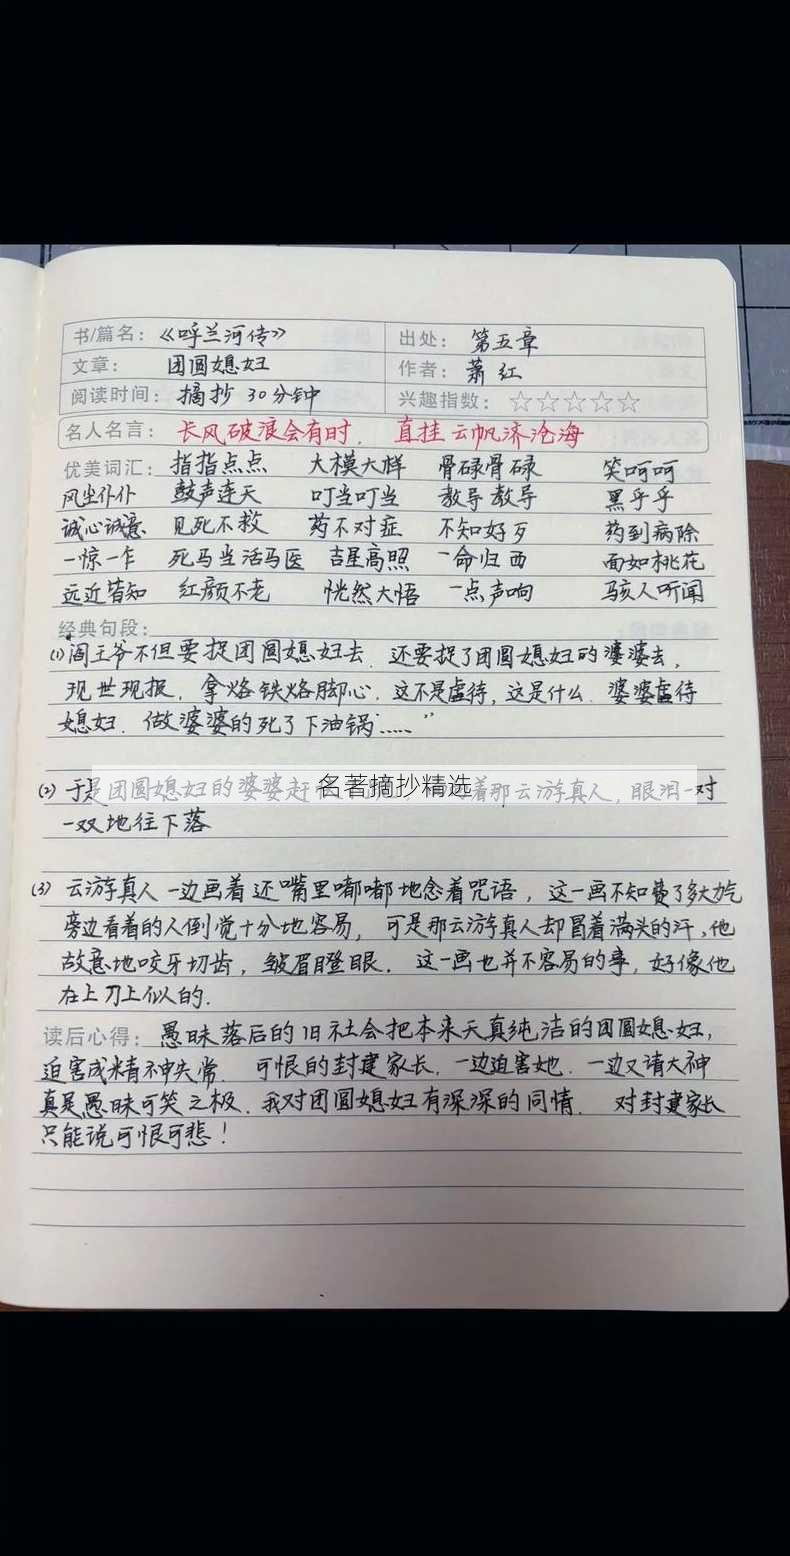 书/篇名：《呼兰河传》 出处：第五章
文章：团圆媳妇 作者：萧红
阅读时间：摘抄 30分钟 兴趣指数：☆☆☆☆☆
名人名言：长风破浪会有时，直挂云帆济沧海
优美词汇：指指点点 大模大样 骨碌骨碌 笑呵呵
风尘仆仆 鼓声连天 叮当叮当 教导教导 黑乎乎
诚心诚意 见死不救 药不对症 不知好歹 药到病除
一惊一乍 死马当活马医 吉星高照 一命归西 面如桃花
远近皆知 红颜不老 恍然大悟 一点声响 骇人听闻
经典句段：
(1)阎王爷不但要捉团圆媳妇去，还要捉了团圆媳妇的婆婆去，
现世现报，拿烙铁烙脚心，这不是虐待，这是什么，婆婆虐待
媳妇，做婆婆的死了下油锅……”
名著摘抄精选
(2) 于是团圆媳妇的婆婆赶 着那云游真人，眼泪一对
一双地往下落
(3) 云游真人一边画着还嘴里嘟嘟地念着咒语，这一画不知费了多大力气
旁边看着的人倒觉十分地容易，可是那云游真人却冒着满头的汗，他
故意地咬牙切齿，皱眉瞪眼．这一画也并不容易的事，好像他
在上刀上似的．
读后心得：愚昧落后的旧社会把本来天真纯洁的团圆媳妇，
迫害成精神失常．可恨的封建家长，一边迫害她，一边又请大神
真是愚昧可笑之极．我对团圆媳妇有深深的同情．对封建家长
只能说可恨可悲！